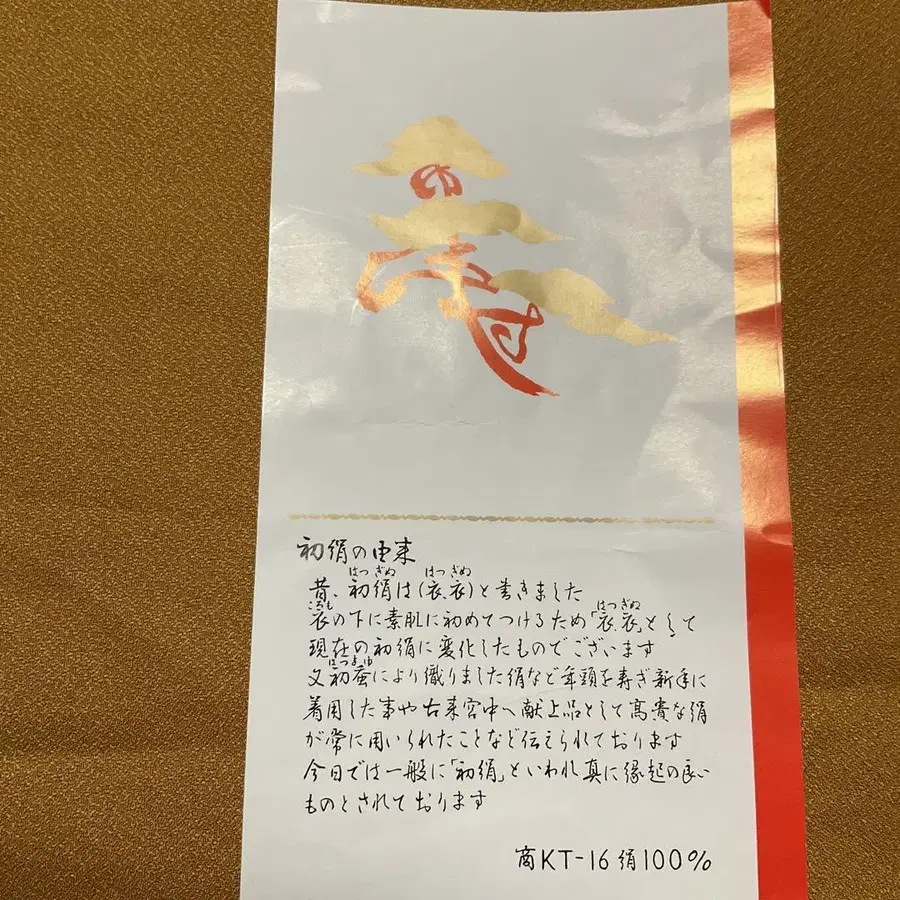 ゆ
初絹の由来
昔、初絹は(衣、衣)と書きました
はつ ぎぬ はつ ぎぬ
衣の下に素肌に初めてつけるため「衣、衣」として
ころも はつ ぎぬ
現在の初絹に変化したものでございます
又初蚕により織りました絹など年頭を寿ぎ新年に
はつまゆ
着用した事や古来宮中へ献上品として高貴な絹
が常に用いられたことなど伝えられております
今日では一般に「初絹」といわれ真に縁起の良い
ものとされております
商KT-16 絹100%